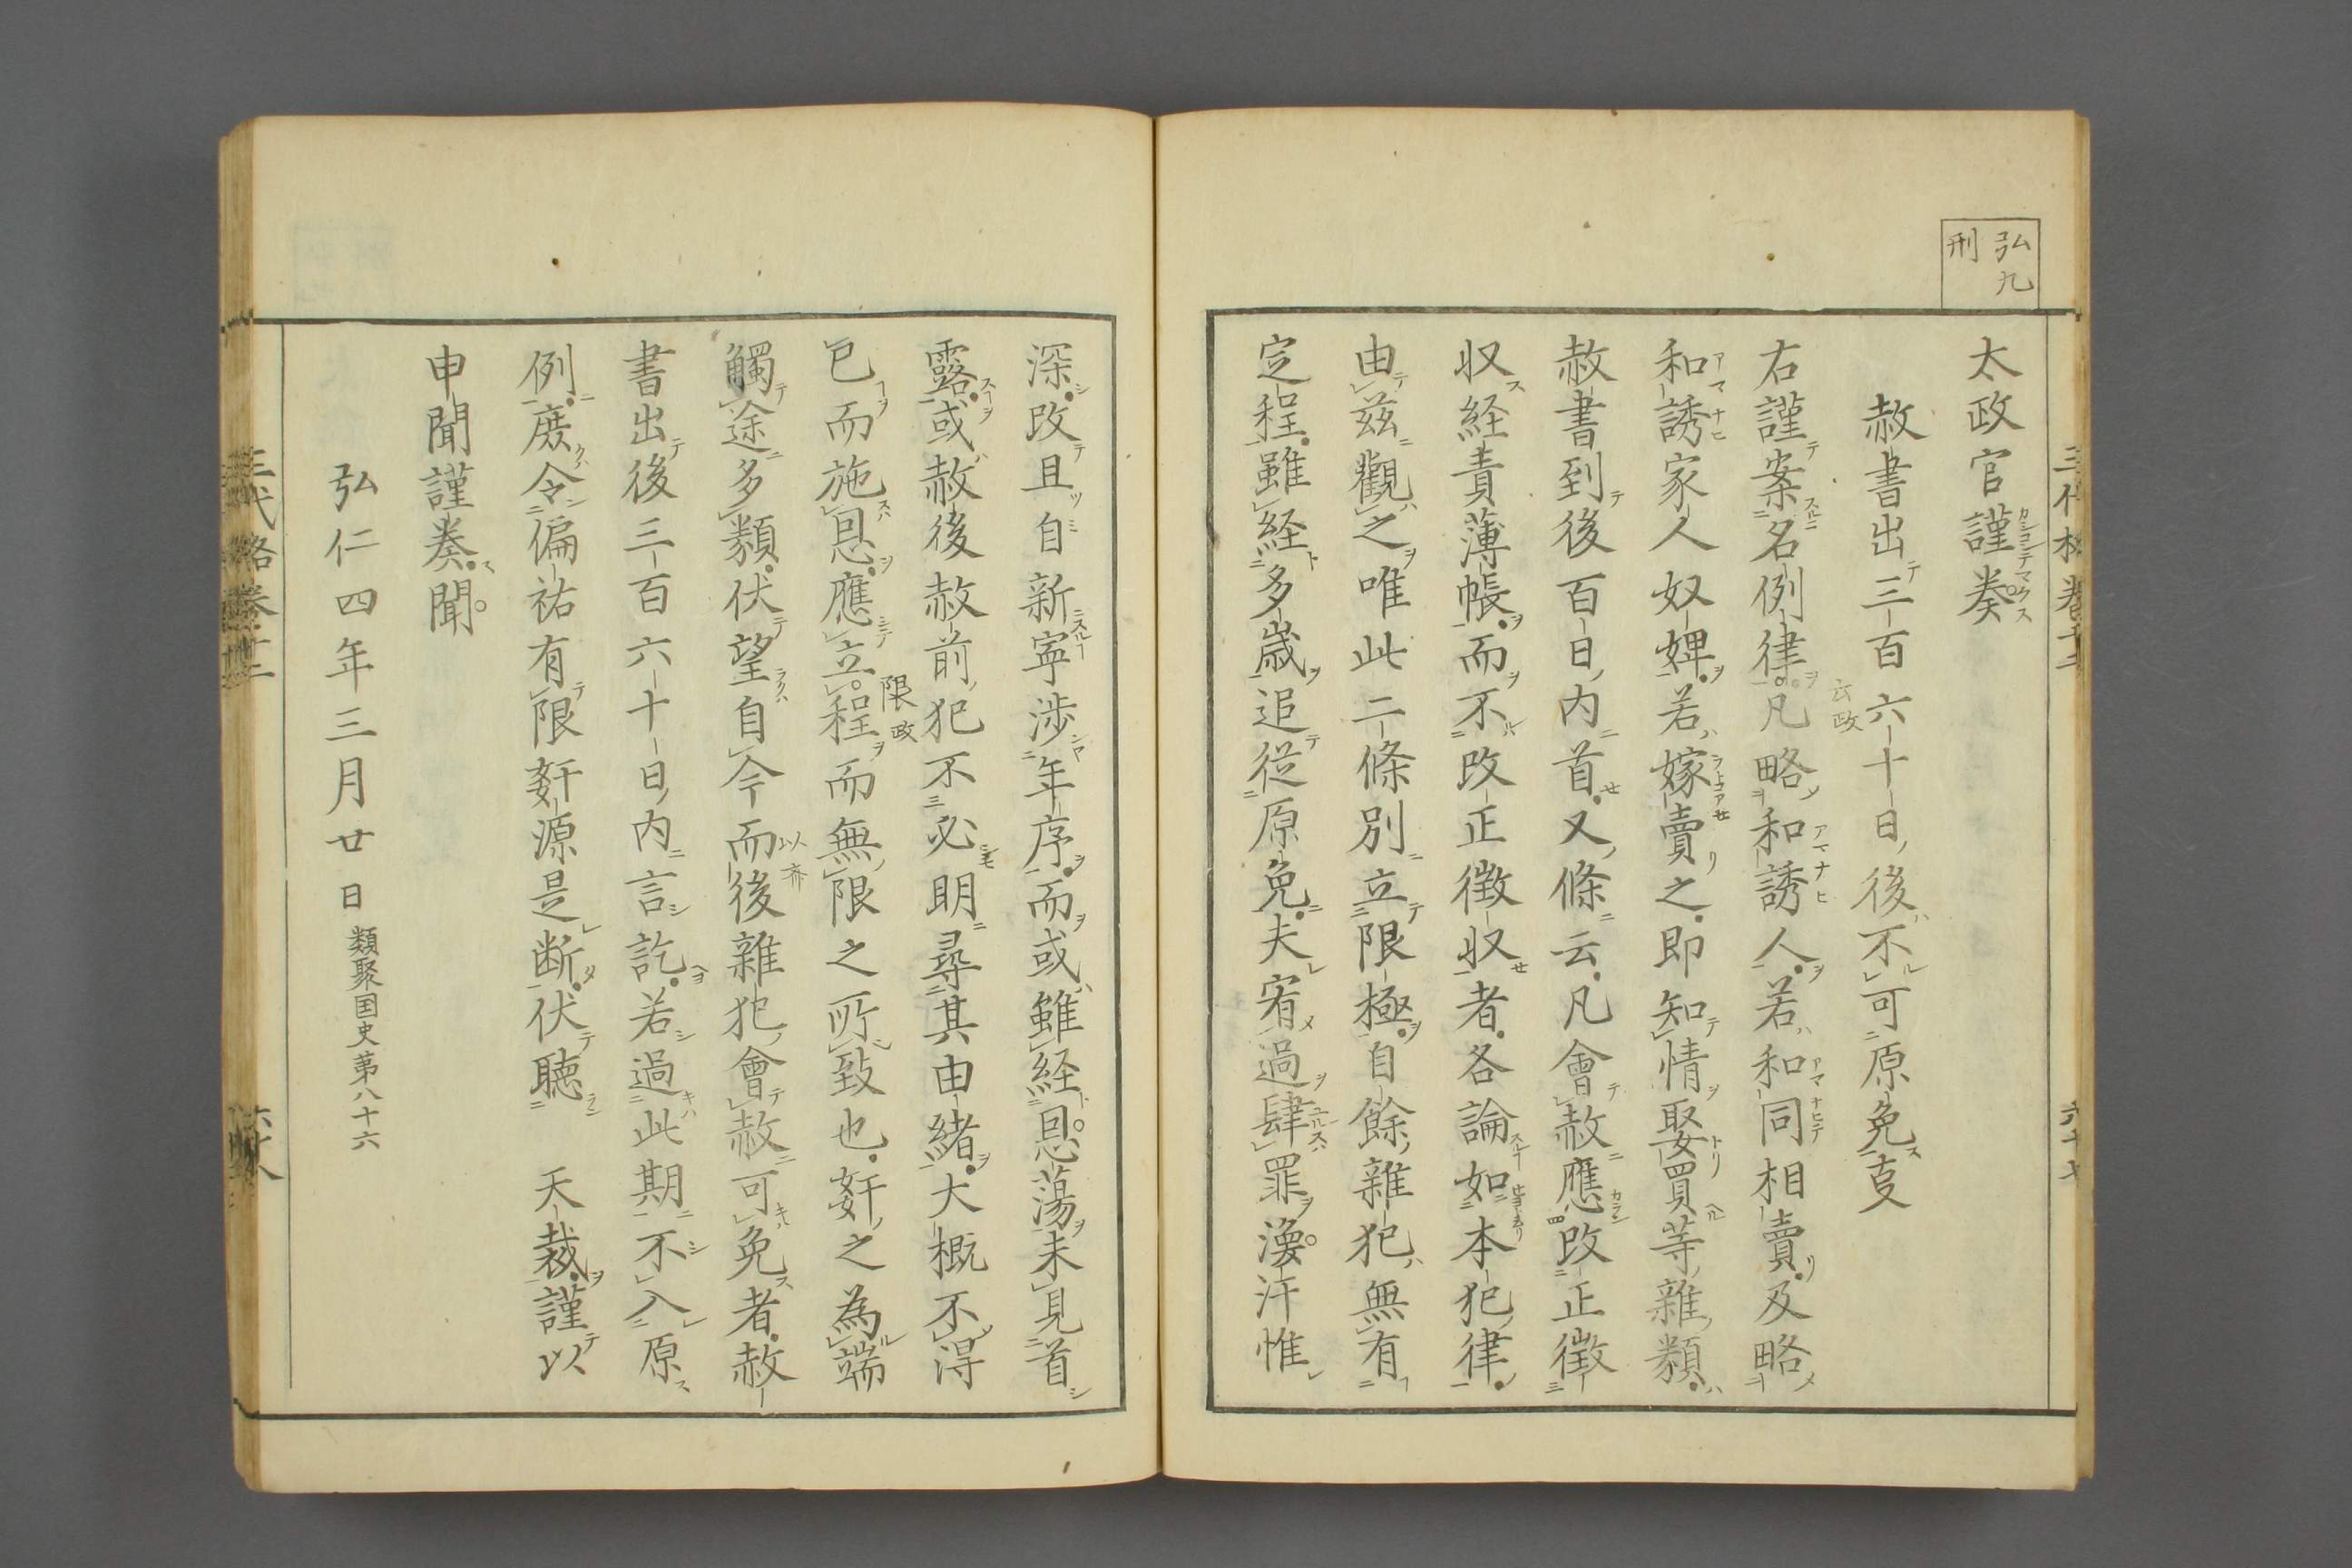 弘九
刑
太政官謹奏
赦書出三百六十日後不可原免亊
右謹案名例律凡略和誘人若和同相賣及略
云政
和誘家人奴婢若嫁賣之即知情娶買等雜類
赦書到後百日内首又條云凡會赦應改正徴
収経責薄帳而不改正徴収者各論如本犯律
由茲觀之唯此二條別立限極自餘雜犯無有
定程雖経多歳追従原免夫宥過肆罪渙汗惟
深改且自新寧渉年序而或雖経恩蕩未見首
露或赦後赦前犯不必明尋其由緒大概不得
已而施恩應立程而無限之所致也姧之為端
限政
觸途多類伏望自今而後雜犯會赦可免者赦
以斎
書出後三百六十日内言訖若過此期不入原
例庶令偏祐有限姧源是断伏聴 天裁謹以
申聞謹奏聞
弘仁四年三月廿日 類聚国史第八十六
三代格巻十二